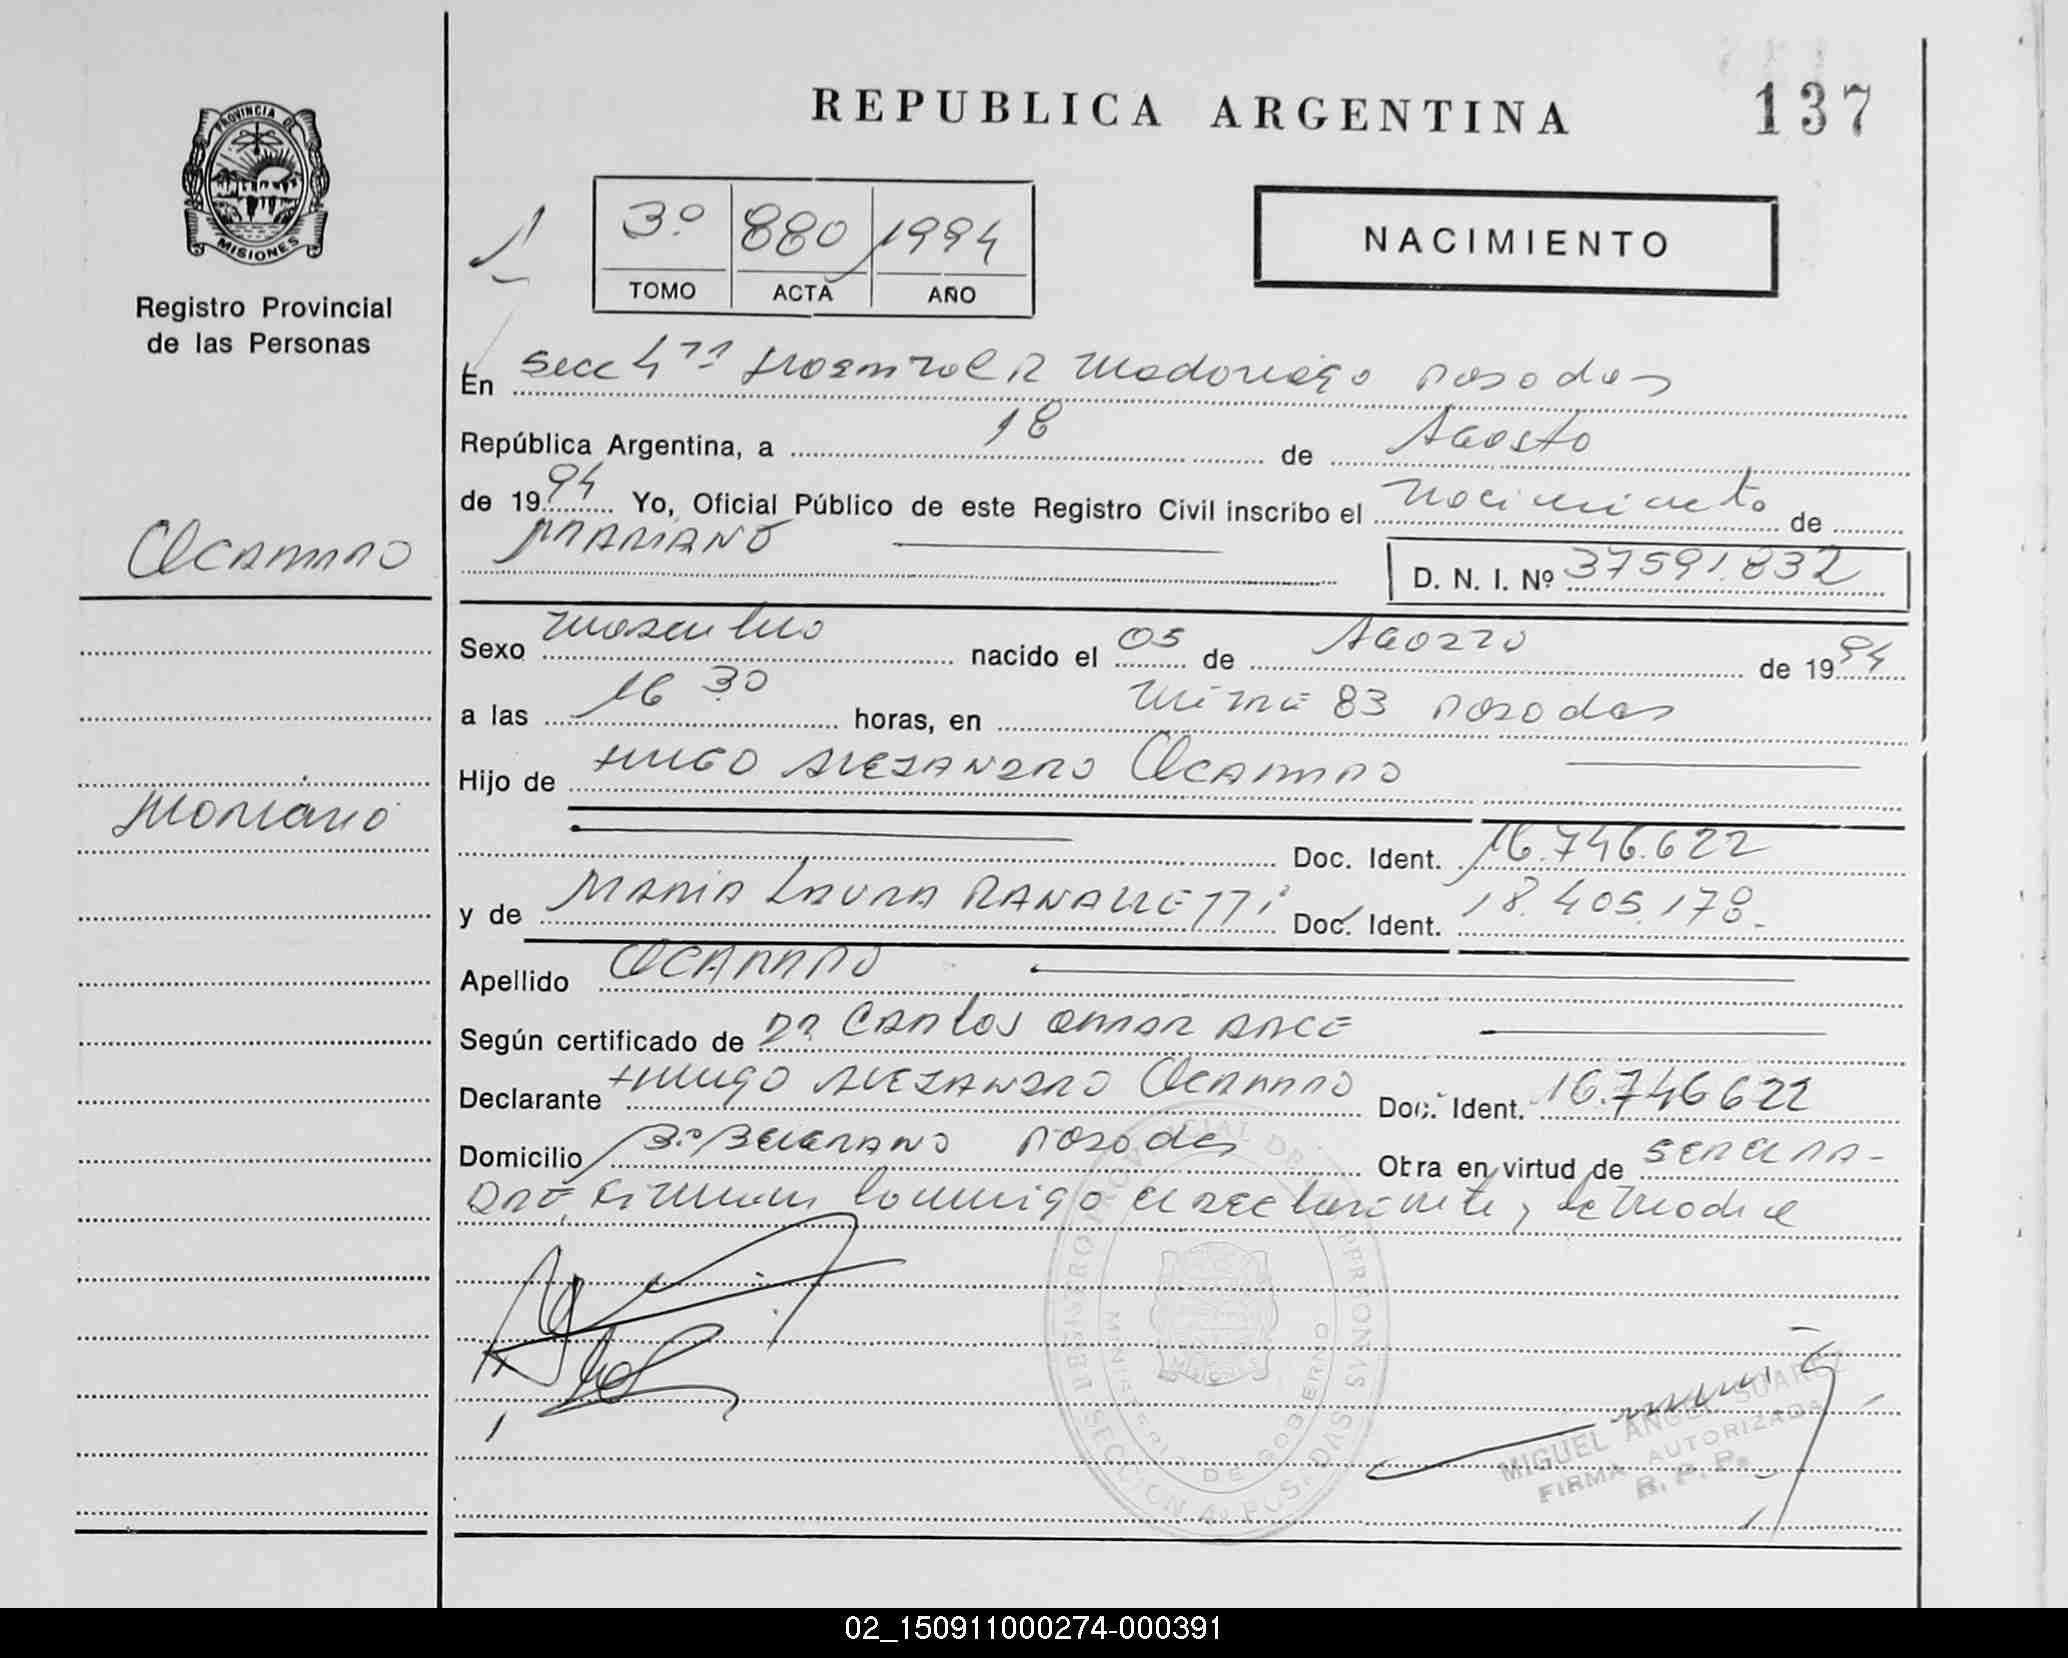 REPUBLICA ARGENTINA
137
PROVINCIA DE
MISIONES
Registro Provincial
de las Personas
3º 880 1994
TOMO ACTA AÑO
NACIMIENTO
En Secc 4ta Hospital R Madariaga Posadas
República Argentina, a 18 de Agosto
de 1994 Yo, Oficial Público de este Registro Civil inscribo el Nacimiento de
MARIANO
D. N. I. Nº 37591.832
Ocampo
Sexo Masculino nacido el 05 de Agosto de 1994
a las 16 30 horas, en 83 Posadas
Hijo de HUGO ALEJANDRO Ocampo
Mariano
Doc. Ident. 16.746.622
y de MARIA LAURA RANALLETTI Doc. Ident. 18.405.178.-
Apellido OCAMPO
Según certificado de DR CARLOS OMAR ARCE
Declarante HUGO ALEJANDRO Ocampo Doc. Ident. 16.746622
Domicilio Bº BELGRANO Posadas Otra en virtud de
Firman conmigo el declarante y la Madre
REGISTRO PROVINCIAL DE PERSONAS
MINISTERIO DE GOBIERNO
SECCION 4º POSADAS
MIGUEL ANGEL SUAREZ
FIRMA AUTORIZADA
R. P. P.
02_150911000274-000391